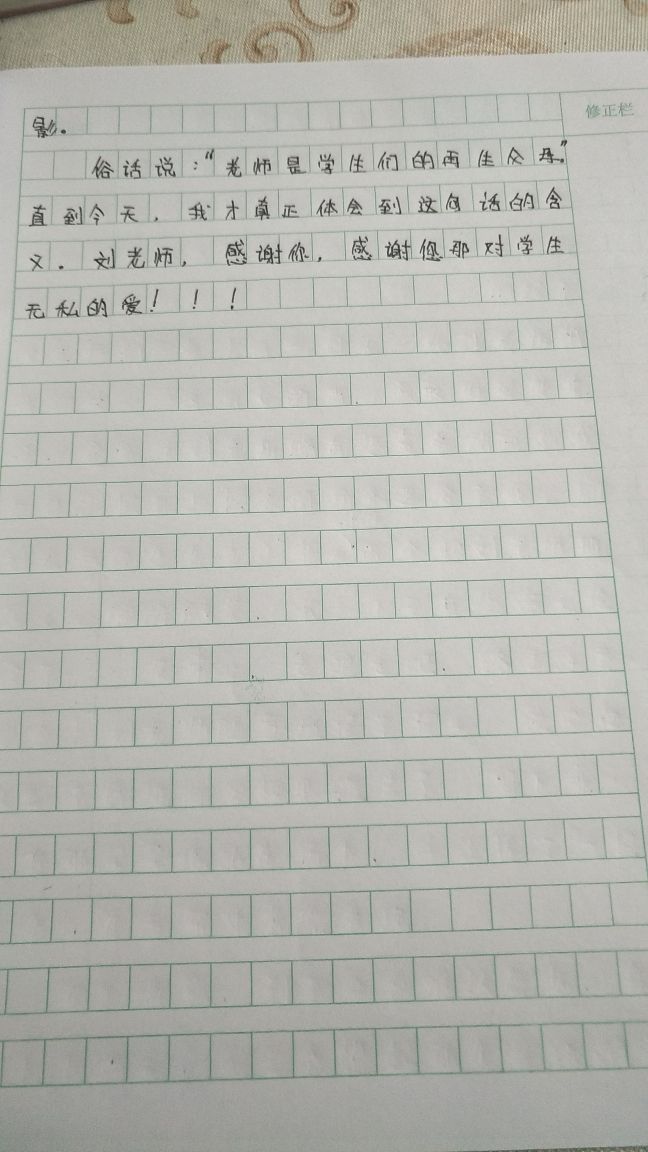 影。
修正栏
俗话说："老师是学生们的再生父母。"
直到今天，我才真正体会到这句话的含
义。刘老师，感谢你，感谢您那对学生
无私的爱！！！